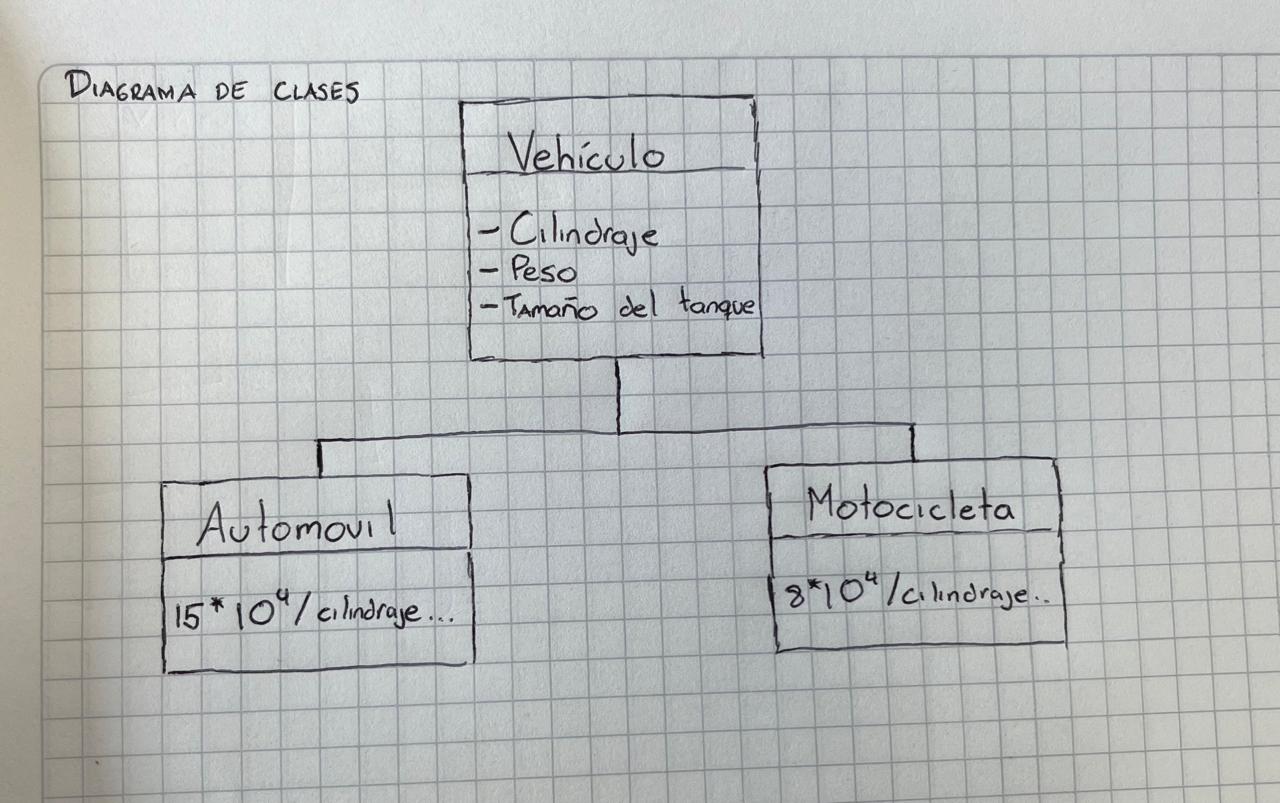 DIAGRAMA DE CLASES
Vehículo
- Cilindraje
- Peso
- Tamaño del tanque
Automovil
15*10⁴/cilindraje...
Motocicleta
8*10⁴/cilindraje..